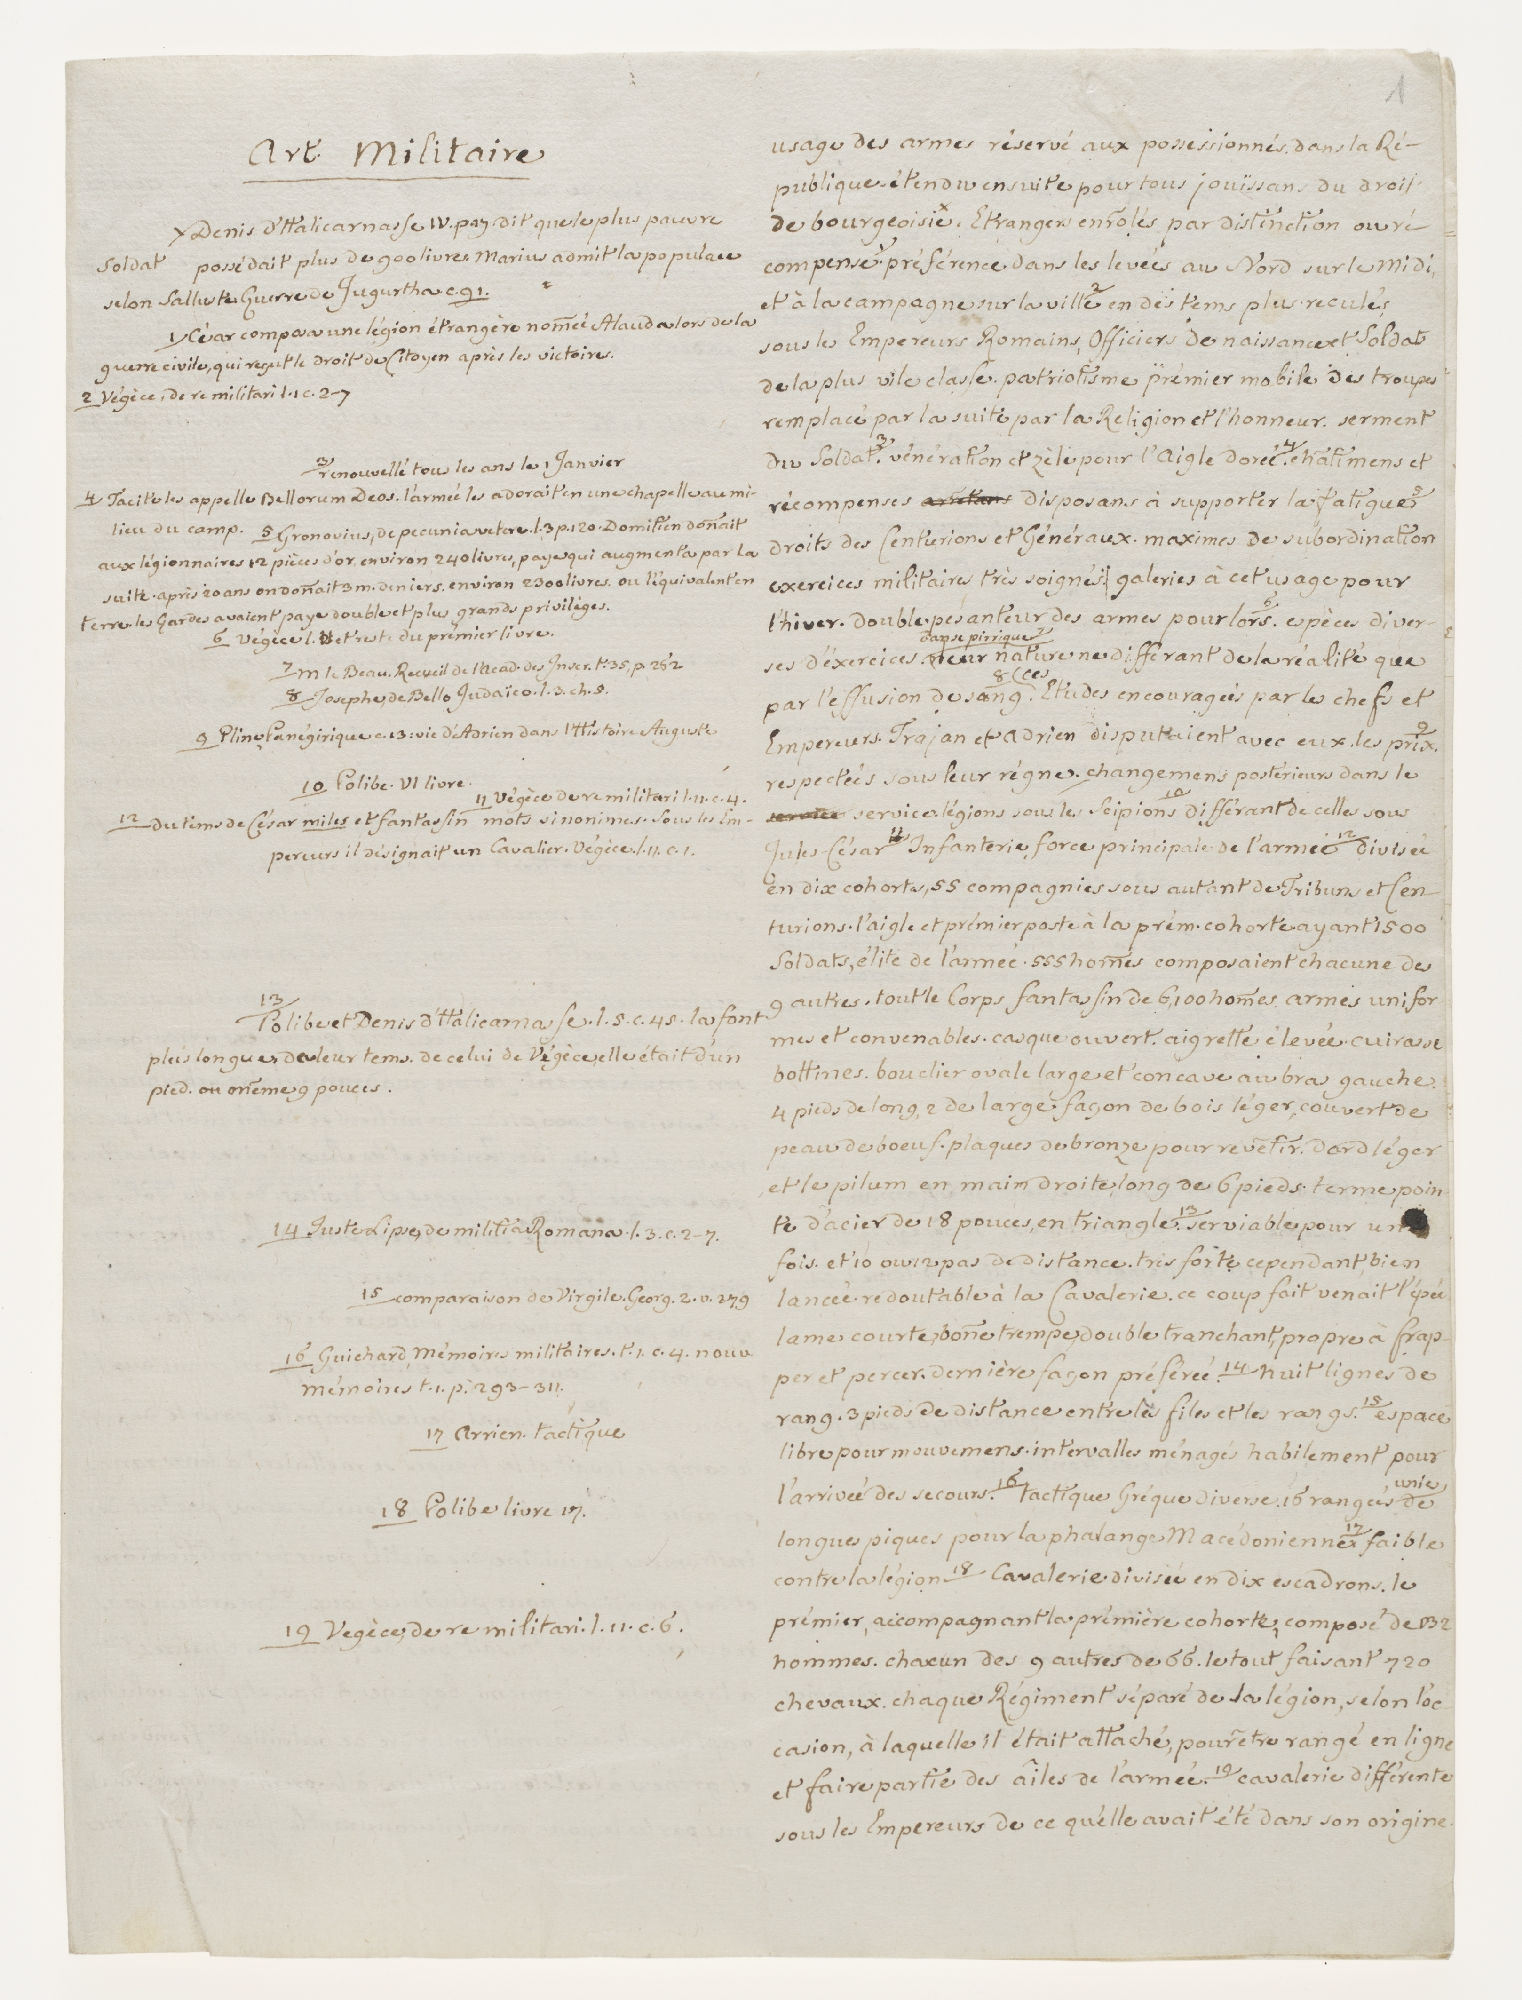 1
Art Militaire
x Denis d'Halicarnasse IV. pag. dit que le plus pauvre
Soldat possédait plus de 900 livres. Marius admit la populace
selon Salluste Guerre de Jugurtha c. 91.
1 César composa une légion étrangère nom̃ée Alauda lors de la
guerre civile, qui reçut le droit de Citoyen après les victoires.
2 Végèce, de re militari l. 1 c. 2-7
3 renouvellé tous les ans le 1 Janvier
4 Tacite les appelle Bellorum Deos. l'armée les adorait en une chapelle au mi-
lieu du camp. 5 Gronovius, de pecunia vetere. l. 3 p. 120. Domitien don̄ait
aux légionnaires 12 pièces d'or. environ 240 livres, paye qui augmenta par la
suite. après 20 ans on don̄ait 3 m. deniers. environ 2300 livres. ou l'équivalent en
terre. les Gardes avaient paye double et plus grands privilèges.
6 Végèce l. et reste du prémier livre.
7 m le Beau. Recueil de l'Acad. des Inscr. t. 35, p. 262
8 Josephe, de Bello Judaïco. l. 3. ch. 5.
9 Pline, Panégirique c. 13: vie d'Adrien dans l'Histoire Auguste
10 Polibe. VI livre.
11 Végèce de re militari l. 11. c. 4.
12 du tems de César miles et fantassin mots sinonimes. Sous les Em-
pereurs il désignait un Cavalier. Végèce. l. 11. c. 1.
13 Polibe et Denis d'Halicarnasse. l. 5. c. 45. la font
plus longue, de leur tems. de celui de Végèce, elle était d'un
pied. ou mēme 9 pouces.
14 Juste Lipse, de militia Romana. l. 3. c. 2-7.
15 comparaison de Virgile. Georg. 2. v. 279
16 Guichard, Mémoires militaires. t. 1. c. 4. nouv.
mémoires t. 1. p. 293-311.
17 Arrien. tactique
18 Polibe livre 17.
19 Vegèce, de re militari. l. 11. c. 6.
usage des armes réservé aux possessionnés. dans la Ré-
publique. étendu ensuite pour tous jouïssans du droit
de bourgeoisie x. Etrangers enrolés par distinction ou ré
compense. 1 préférence dans les levées au Nord sur le Midi,
et à la campagne sur la ville 2 en des tems plus reculés,
sous les Empereurs Romains, Officiers de naissance et Soldats
de la plus vile classe. patriotisme prémier mobile des troupes
remplacé par la suite par la Religion et l'honneur. serment
du Soldat. 3 vénération et zèle pour l'Aigle dorée. 4 chatimens et
récompenses disposans à supporter la fatigue 5
droits des Centurions et Généraux. maximes de subordination
exercices militaires très soignés, galeries à cet usage pour
l'hiver. double pesanteur des armes pour lors. 6 espèces diver-
danse pirrique 7
ses d'éxercices. leur nature ne différant de la réalité que
par l'effusion de sang. 8 (ces Etudes encouragées par les chefs et
Empereurs. Trajan et Adrien disputaient avec eux. les prix. 9
respectées sous leur règne. changemens postérieurs dans le
service légions sous les Scipions 10 différant de celles sous
Jules-César 11 Infanterie, force principale de l'armée 12 divisée
en dix cohortes, 55 compagnies sous autant de Tribuns et Cen-
turions. l'aigle et prémier poste à la prém. cohorte ayant 1500
Soldats, élite de l'armée. 555 hom̄es composaient chacune des
9 autres. tout le Corps fantassin de 6,100 hom̄es. armes unifor-
mes et convenables. casque ouvert. aigrette élevée. cuirasse
bottines. bouclier ovale large et concave au bras gauche.
4 pieds de long, 2 de large. façon de bois léger, couvert de
peau de boeuf. plaques de bronze pour revetir. dard léger
et le pilum en main droite, long de 6 pieds. terme, poin-
te d'acier de 18 pouces, en triangle. 13 serviable pour une
fois. et 10 ou 12 pas de distance. très forte cependant, bien
lancée. redoutable à la Cavalerie. ce coup fait venait l'épée
lame courte, bon̄e trempe, double tranchant, propre à frap-
per et percer. dernière façon préférée. 14 huit lignes de
rang. 3 pieds de distance entre les files et les rangs. 15 espace
libre pour mouvemens. intervalles ménagés habilement pour
l'arrivée des secours. 16 tactique Grèque diverse. 16 rangées de
unies
longues piques pour la phalange Macédonienne 17 faible
contre la légion 18 Cavalerie divisée en dix escadrons. le
prémier, accompagnant la prémière cohorte, composé de 132
hommes. chacun des 9 autres de 66. le tout faisant 720
chevaux. chaque Régiment séparé de la légion, selon l'oc-
casion, à laquelle il était attaché, pour être rangé en ligne
et faire partie des âiles de l'armée. 19 cavalerie différente
sous les Empereurs de ce qu'elle avait été dans son origine.